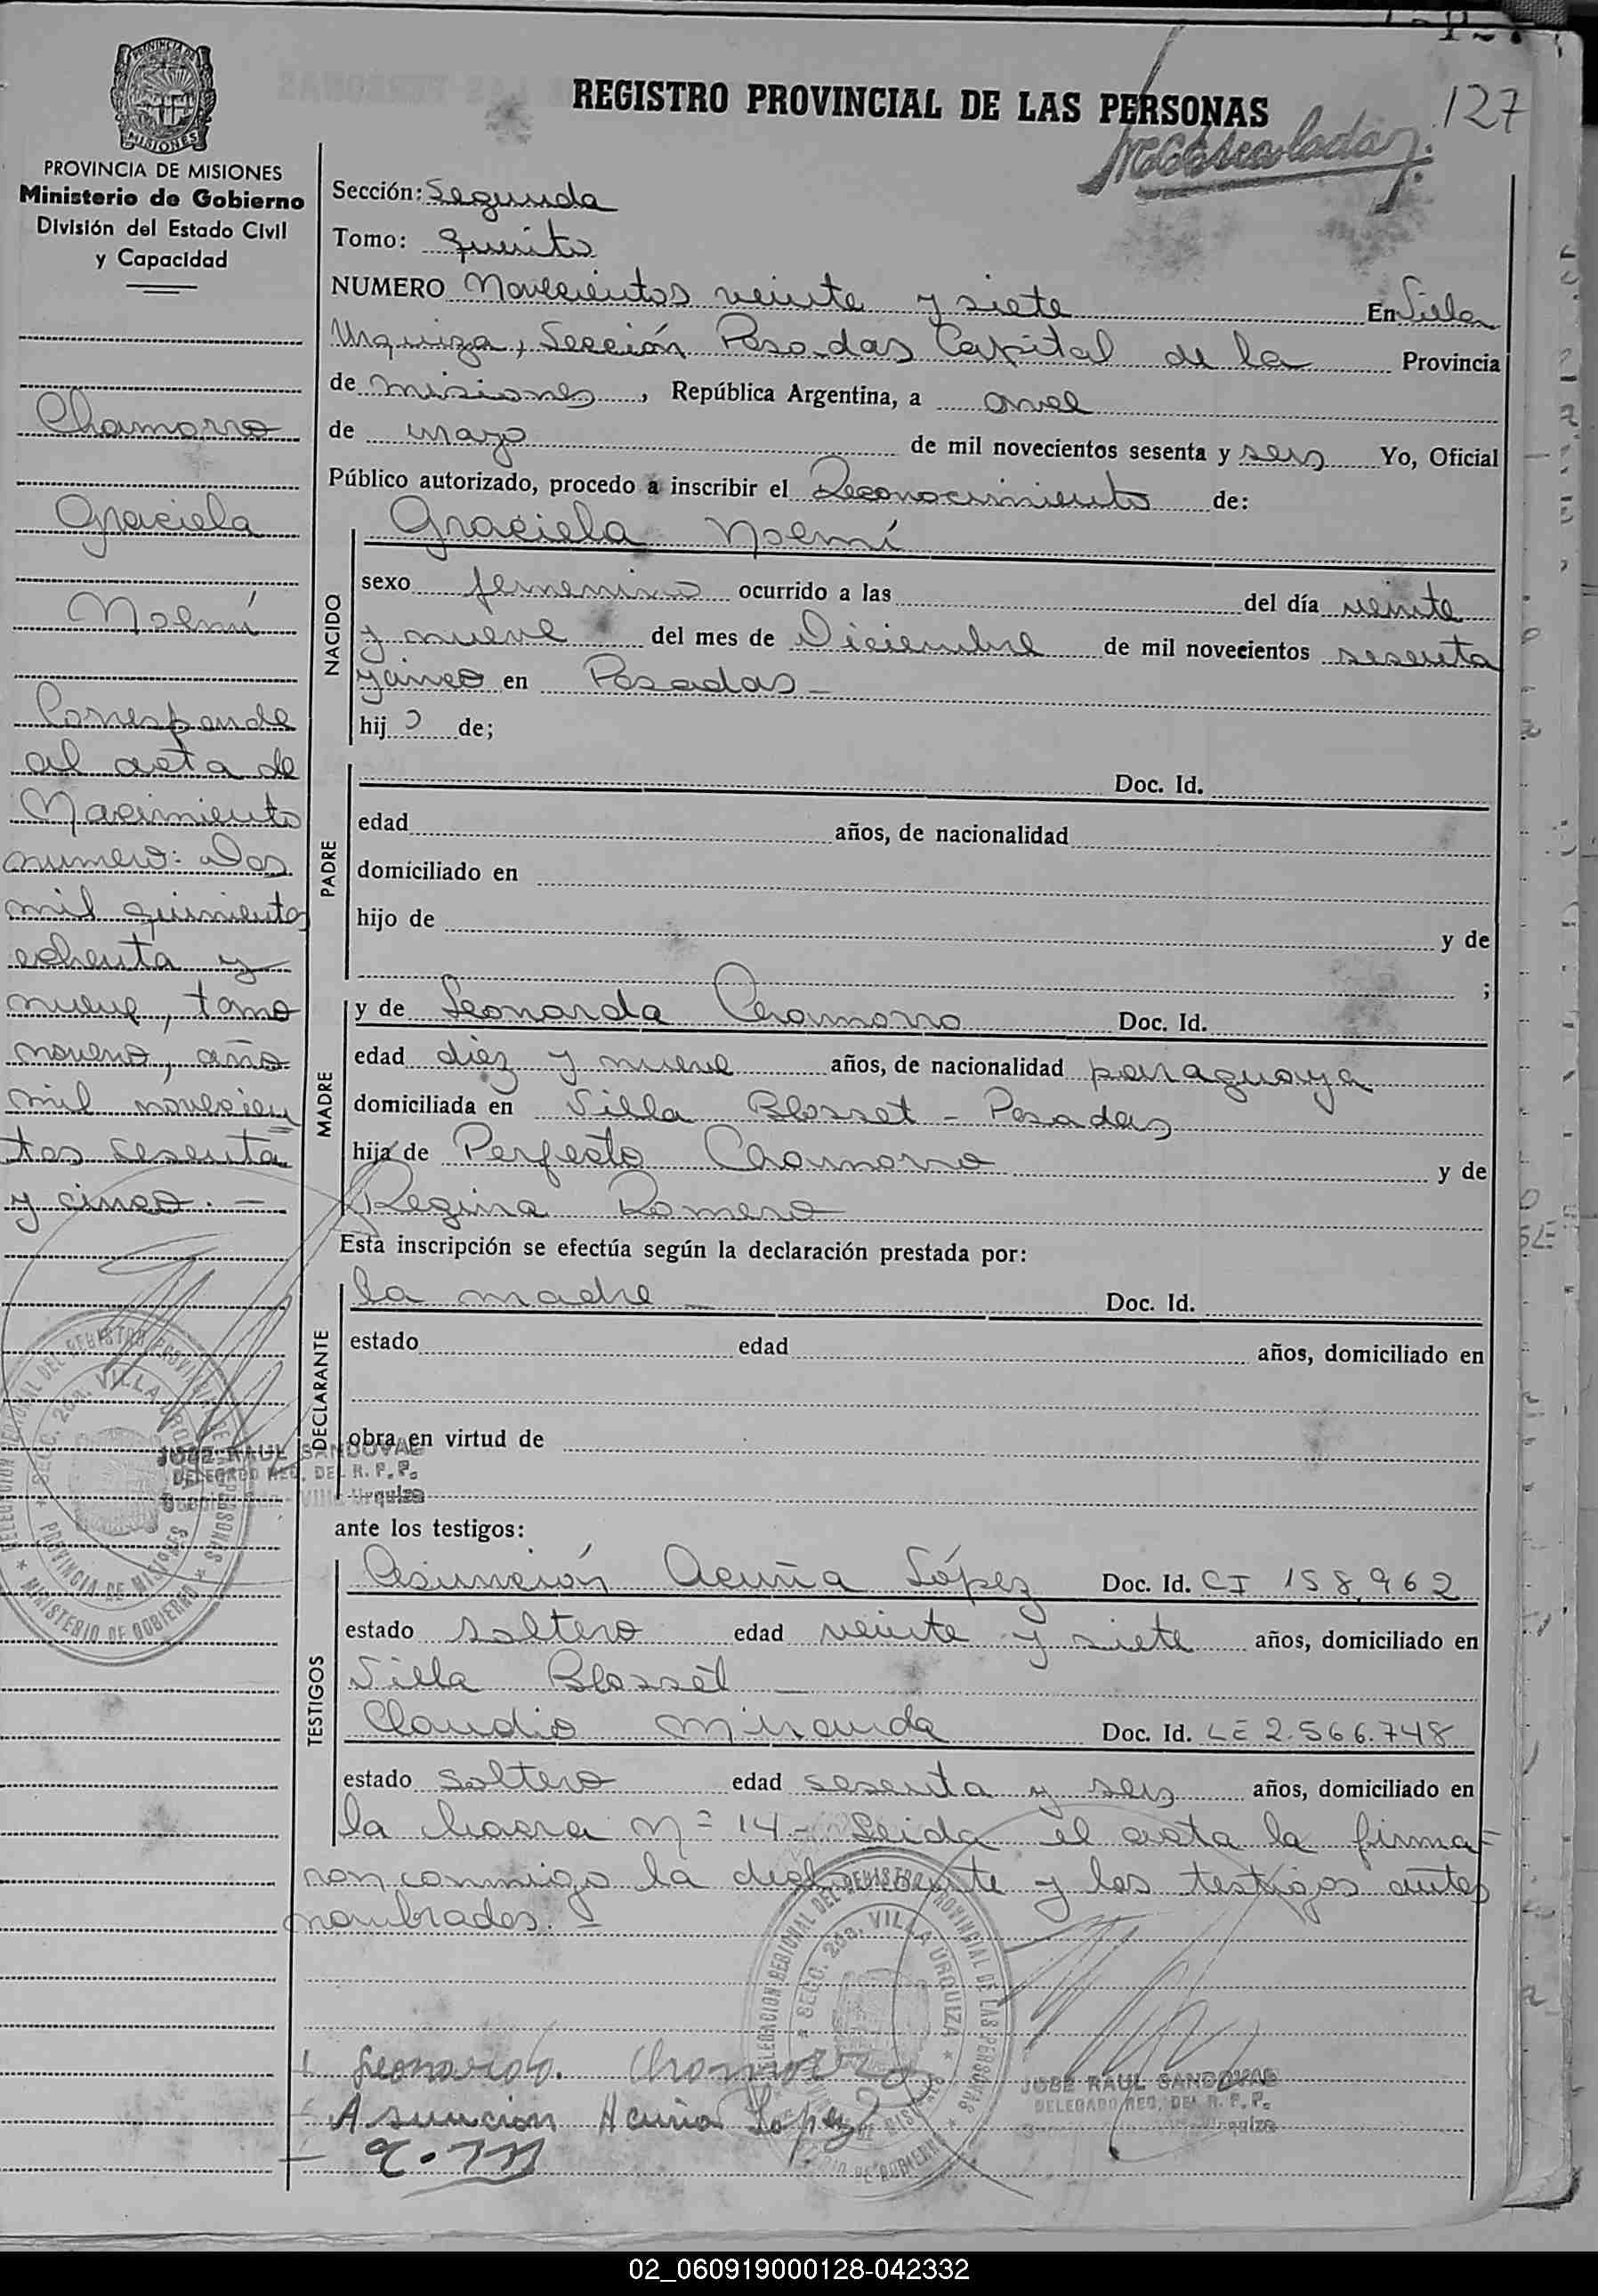 REGISTRO PROVINCIAL DE LAS PERSONAS
127
PROVINCIA DE MISIONES
Ministerio de Gobierno
División del Estado Civil
y Capacidad
Chamorro
Graciela
Noemí
Corresponde
al acta de
Nacimiento
numero: Dos
mil quinientos
ochenta y
nueve, tomo
noveno, año
mil novecien
tos sesenta
y cinco. -
Sección: Segunda
Tomo: Quinto
NUMERO Novecientos veinte y siete En Villa
Urquiza, Sección Posadas Capital de la Provincia
de Misiones, República Argentina, a once
de mayo de mil novecientos sesenta y seis Yo, Oficial
Público autorizado, procedo a inscribir el Reconocimiento de:
NACIDO
Graciela Noemí
sexo femenino ocurrido a las del día veinte
y nueve del mes de Diciembre de mil novecientos sesenta
y cinco en Posadas -
hij de;
PADRE
Doc. Id.
edad años, de nacionalidad
domiciliado en
hijo de y de
;
MADRE
y de Leonarda Chamorro Doc. Id.
edad diez y nueve años, de nacionalidad paraguaya
domiciliada en Villa Blosset - Posadas
hija de Perfecto Chamorro y de
Regina Romero
Esta inscripción se efectúa según la declaración prestada por:
DECLARANTE
la madre Doc. Id.
estado edad años, domiciliado en
obra en virtud de
JOSE RAUL SANDOVAL
DELEGADO REG. DEL R. P. P.
Villa Urquiza
DELEGACION REGIONAL DEL REGISTRO PROVINCIAL DE LAS PERSONAS
SECC. 2da. VILLA URQUIZA
PROVINCIA DE MISIONES
MINISTERIO DE GOBIERNO
ante los testigos:
TESTIGOS
Asunción Acuña López Doc. Id. CI 158,962
estado soltero edad veinte y siete años, domiciliado en
Villa Blosset -
Claudio Miranda Doc. Id. LE 2.566.748
estado soltero edad sesenta y seis años, domiciliado en
la chacra Nº 14 - Leida el acta la firma-
ron conmigo la declarante y los testigos antes
nombrados. -
DELEGACION REGIONAL DEL REGISTRO PROVINCIAL DE LAS PERSONAS
SECC. 2da. VILLA URQUIZA
Leonarda Chamorro
Asuncion Acuña Lopez
JOSE RAUL SANDOVAL
DELEGADO REG. DEL R. P. P.
Urquiza
02_060919000128-042332